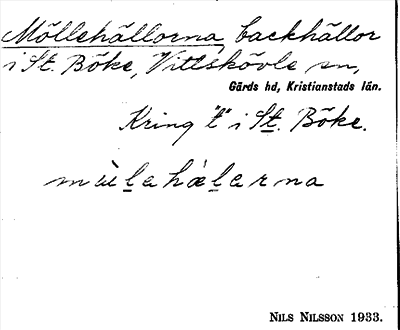 Möllehällorna, backhällor
i St. Böke, Vittskövle sn,
Gärds hd, Kristianstads län.
Kring "t" i St. Böke.
mùlahælarna
NILS NILSSON 1933.